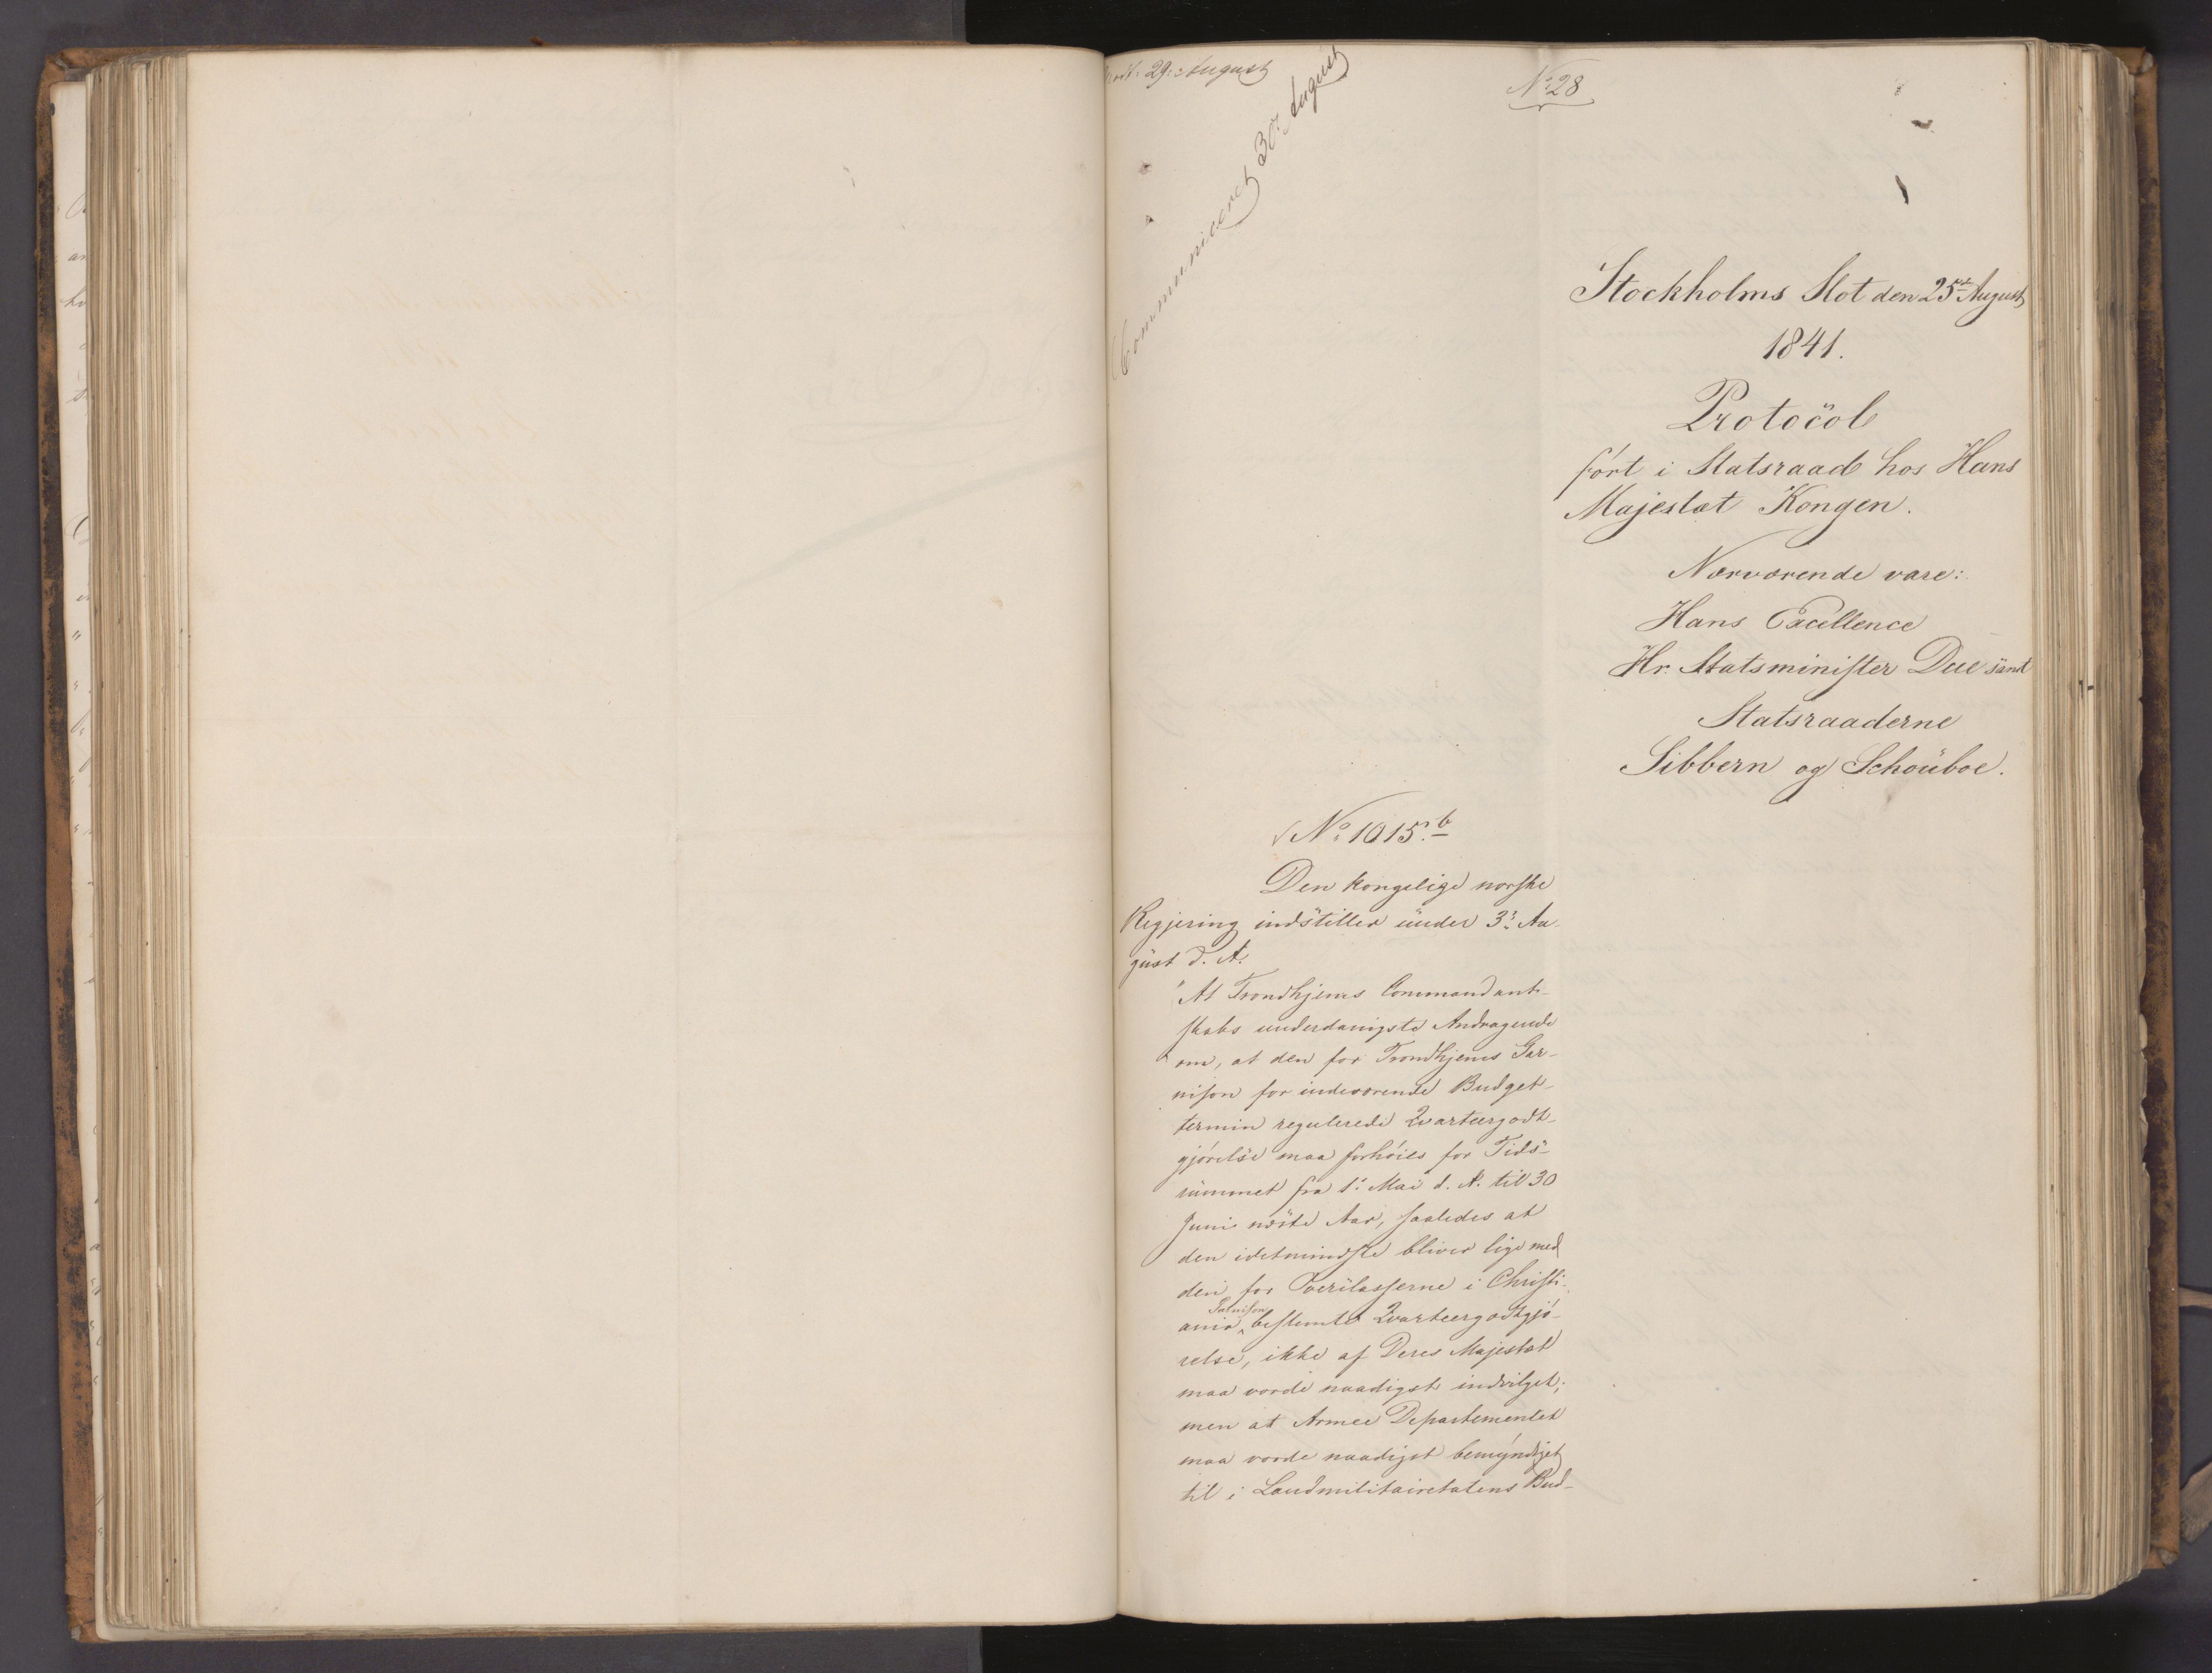 modt: 29: August
Communiceret 30: August
No 28
Stockholms Slot den 25de August
1841.
Protocol
ført i Statsraad hos Hans
Majestæt Kongen.
Nærværende vare:
Hans Excellence
Hr. Statsminister Due samt
Statsraaderne
Sibbern og Schouboe.
No 1015.b
Den kongelige norske
Regjering indstiller under 3: Au-
gust d. A.
"At Trondhjems Commandant-
skabs underdanigste Andragende
om, at den for Trondhjems Gar-
nison for indeværende Budget-
termin regulerede Qvarteergodt-
gjørelse maa forhøies for Tids-
rummet fra 1: Mai d. A. til 30
Juni næste Aar, saaledes at
den idetmindste bliver lige med
den for Overclasserne i Christi-
ania Garnison bestemte Qvarteergodtgjø-
relse, ikke af Deres Majestæt
maa vorde naadigst indvilget;
men at Armee Departementet
maa vorde naadigst bemyndiget
til i Landmilitairetatens Bud-